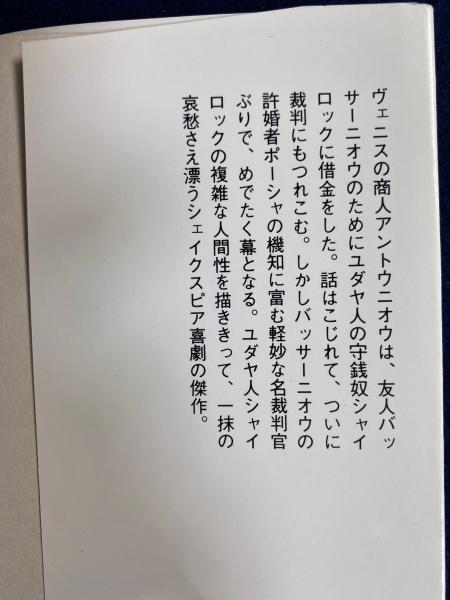 ヴェニスの商人アントウニオウは、友人バッ
サーニオウのためにユダヤ人の守銭奴シャイ
ロックに借金をした。話はこじれて、ついに
裁判にもつれこむ。しかしバッサーニオウの
許婚者ポーシャの機知に富む軽妙な名裁判官
ぶりで、めでたく幕となる。ユダヤ人シャイ
ロックの複雑な人間性を描ききって、一抹の
哀愁さえ漂うシェイクスピア喜劇の傑作。